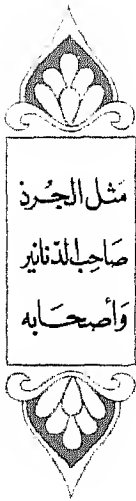 مثل الجرذ
صاحب الدنانير
وأصحابه